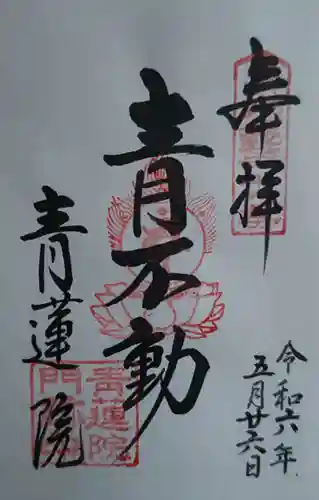 奉拝
令和六年
五月廿六日
青不動
青蓮院
青蓮院